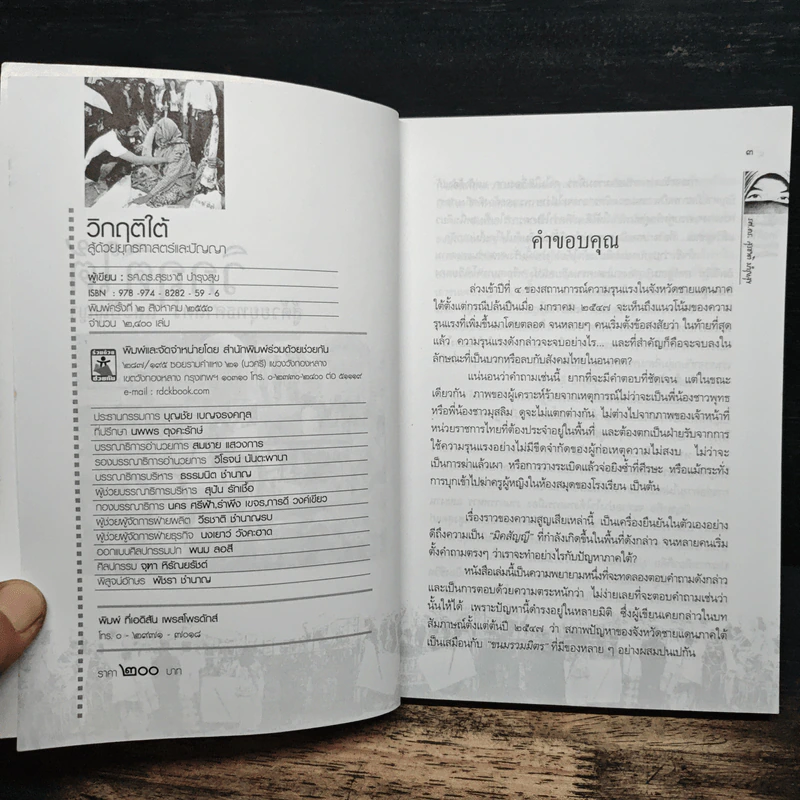 วิกฤติใต้
สู้ด้วยยุทธศาสตร์และปัญญา
ผู้เขียน : รศ.ดร.สุรชาติ บำรุงสุข
ISBN : 978 -974 - 8282 - 59 - 6
พิมพ์ครั้งที่ ๒ สิงหาคม ๒๕๕๐
จำนวน ๒,๔๐๐ เล่ม
ร่วมด้วย
ช่วยกัน
พิมพ์และจัดจำหน่ายโดย สำนักพิมพ์ร่วมด้วยช่วยกัน
๒๘๔๗/๑๙๕ ซอยรามคำแหง ๒๑ (นวศรี) แขวงวังทองหลาง
เขตวังทองหลาง กรุงเทพฯ ๑๐๓๑๐ โทร. ๐-๒๗๓๐-๒๔๐๐ ต่อ ๕๑๑๙
e-mail : rdckbook.com
ประธานกรรมการ บุญชัย เบญจรงคกุล
ที่ปรึกษา นพพร ตุงคะรักษ์
บรรณาธิการอำนวยการ สมชาย แสวงการ
รองบรรณาธิการอำนวยการ วิโรจน์ นันตะพานา
บรรณาธิการบริหาร ธรรมนิต ชำนาญ
ผู้ช่วยบรรณาธิการบริหาร สุปัน รักเชื้อ
กองบรรณาธิการ นคร ศรีฟ้า,รำพึง เขจร,ภารดี วงค์เขียว
ผู้ช่วยผู้จัดการฝ่ายผลิต วีรชาติ ชำนาญรบ
ผู้ช่วยผู้จัดการฝ่ายธุรกิจ นงเยาว์ วังคะฮาด
ออกแบบศิลปกรรมปก พนม ลอสี
ศิลปกรรม จุฑา หิรัณยรัชต์
พิสูจน์อักษร พัชรา ชำนาญ
พิมพ์ ที่เอดิสัน เพรสโพรดักส์
โทร. ๐ - ๒๙๗๑ - ๗๐๑๘
ราคา ๒๐๐ บาท
๓
รศ.ดร. สุรชาติ บำรุงสุข
คำขอบคุณ
ล่วงเข้าปีที่ ๔ ของสถานการณ์ความรุนแรงในจังหวัดชายแดนภาค
ใต้ตั้งแต่กรณีปล้นปืนเมื่อ มกราคม ๒๕๔๗ จะเห็นถึงแนวโน้มของความ
รุนแรงที่เพิ่มขึ้นมาโดยตลอด จนหลายๆ คนเริ่มตั้งข้อสงสัยว่า ในท้ายที่สุด
แล้ว ความรุนแรงดังกล่าวจะจบอย่างไร... และที่สำคัญก็คือจะจบลงใน
ลักษณะที่เป็นบวกหรือลบกับสังคมไทยในอนาคต?
แน่นอนว่าคำถามเช่นนี้ ยากที่จะมีคำตอบที่ชัดเจน แต่ในขณะ
เดียวกัน ภาพของผู้เคราะห์ร้ายจากเหตุการณ์ไม่ว่าจะเป็นพี่น้องชาวพุทธ
หรือพี่น้องชาวมุสลิม ดูจะไม่แตกต่างกัน ไม่ต่างไปจากภาพของเจ้าหน้าที่
หน่วยราชการไทยที่ต้องประจำอยู่ในพื้นที่ และต้องตกเป็นฝ่ายรับจากการ
ใช้ความรุนแรงอย่างไม่มีขีดจำกัดของผู้ก่อเหตุความไม่สงบ ไม่ว่าจะ
เป็นการฆ่าแล้วเผา หรือการวางระเบิดแล้วจ่อยิงซ้ำที่ศีรษะ หรือแม้กระทั่ง
การบุกเข้าไปฆ่าครูผู้หญิงในห้องสมุดของโรงเรียน เป็นต้น
เรื่องราวของความสูญเสียเหล่านี้ เป็นเครื่องยืนยันในตัวเองอย่าง
ดีถึงความเป็น “มิคสัญญี” ที่กำลังเกิดขึ้นในพื้นที่ดังกล่าว จนหลายคนเริ่ม
ตั้งคำถามตรงๆ ว่าเราจะทำอย่างไรกับปัญหาภาคใต้?
หนังสือเล่มนี้เป็นความพยายามหนึ่งที่จะทดลองตอบคำถามดังกล่าว
และเป็นการตอบด้วยความตระหนักว่า ไม่ง่ายเลยที่จะตอบคำถามเช่นว่า
นั้นให้ได้ เพราะปัญหานี้ดำรงอยู่ในหลายมิติ ซึ่งผู้เขียนเคยกล่าวในบท
สัมภาษณ์ตั้งแต่ต้นปี ๒๕๔๗ ว่า สภาพปัญหาของจังหวัดชายแดนภาคใต้
เป็นเสมือนกับ “ขนมรวมมิตร” ที่มีของหลาย ๆ อย่างผสมปนเปกัน